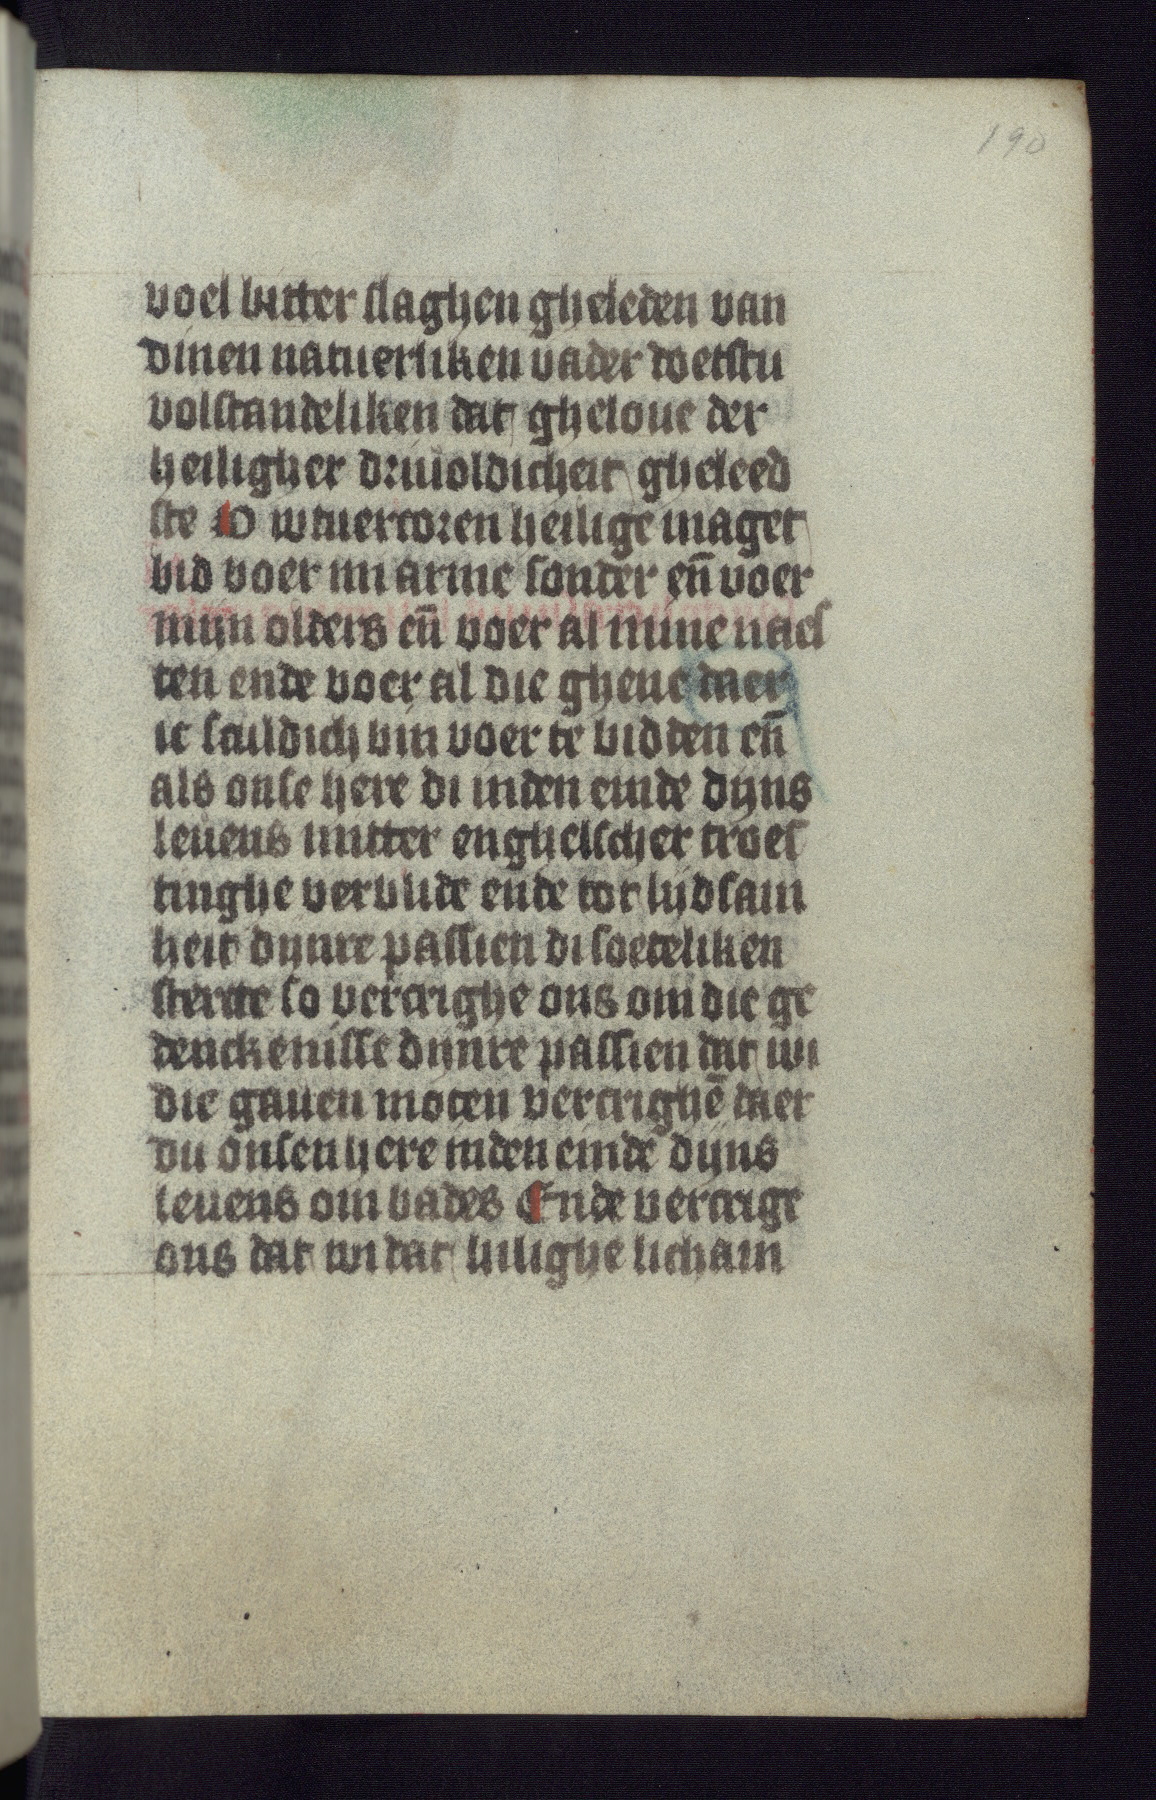 190
voel bitter slaghen gheleden van
dinen natuerliken vader doetstu
volstandeliken dat gheloue der
heiligher driuoldicheit gheleed
ste O wtuercoren heilige maget
bid voer mi arme sonder en̄ voer
mijn olders en̄ voer al mine naes
ten ende voer al die ghene daer
ic sculdich bin voer te bidden en̄
als onse here di inden einde dijns
leuens mitter enghelscher troes
tinghe verblide ende tot lijdsam
heit dijnre passien di soeteliken
sterctte so vercrighe ons om die ge
denckenisse dijnre passien dat wi
die gauen moten vercrighē daer
du onsen here inden einde dijns
leuens om bades Ende vercrige
ons dat wi dat hilighe licham